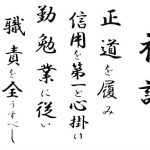 社訓
正道を履み
信用を第一と心掛け
勤勉業に従い
職責を全うすべし